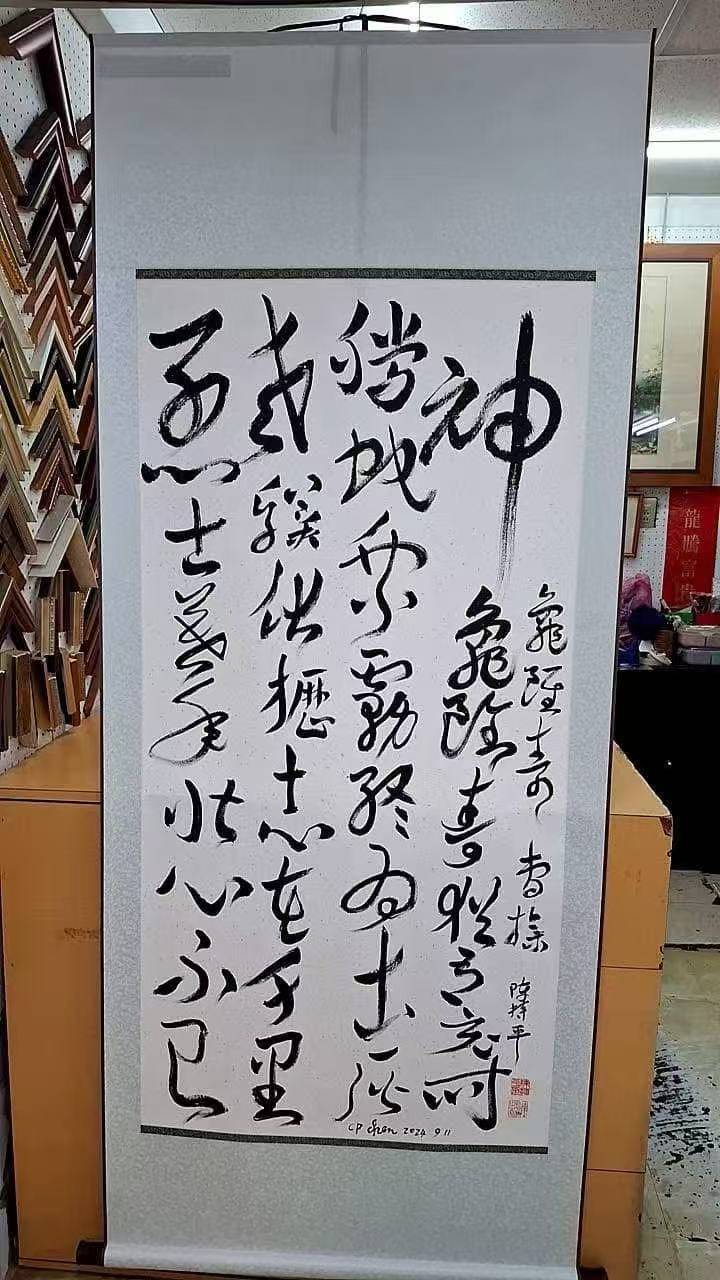 龜雖壽 曹操 陳持平
神龜雖壽猶有竟時
騰蛇乘霧終為土灰
老驥伏櫪志在千里
烈士暮年壯心不已
CP Chen 2024 9 11
龍騰富